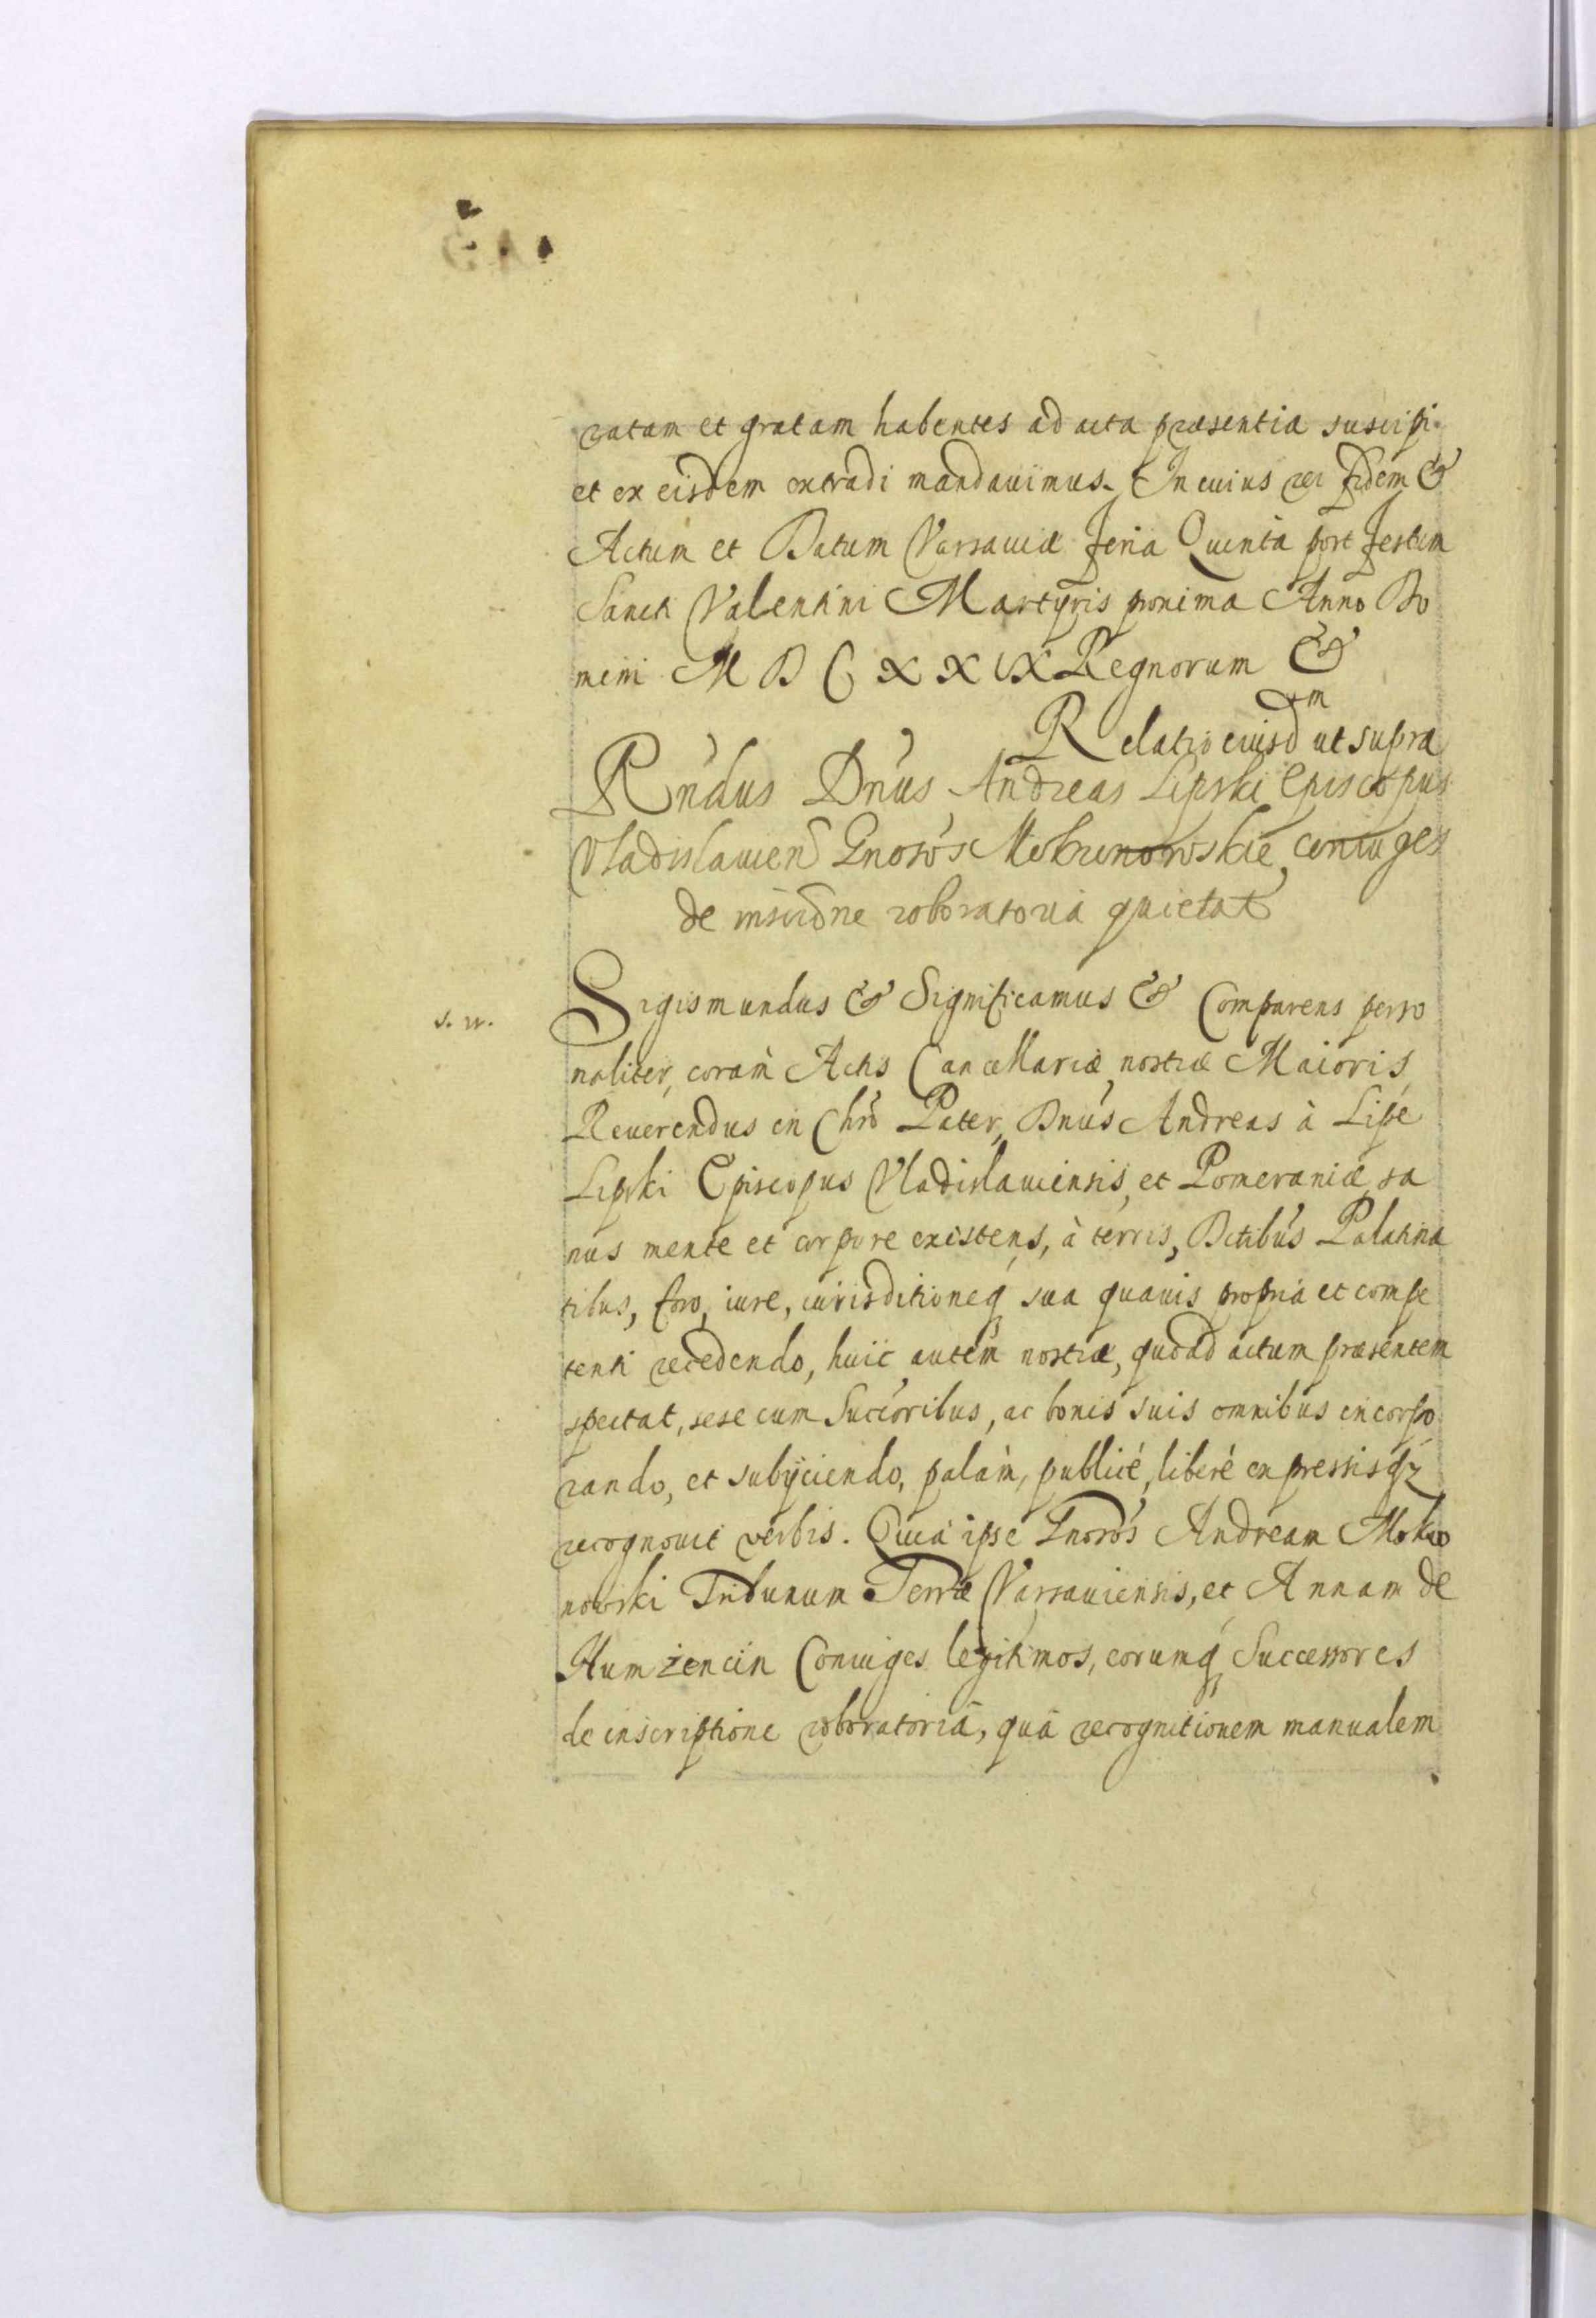 ratam et gratam habentes ad acta præsentia suscipi
et ex eisdem extradi mandauimus. In cuius rei fidem &
Actum et Datum Varsauiæ feria Quinta post festum
Sancti Valentini Martyris proxima Anno Do
mini M D C X X IX Regnorum &
Relatio eiusdm ut supra
Rndus Dnus Andreas Lipski Episcopus
Vladislauien Gnosos Mokronowskie coniuges
de inscrone roboratoria quietat
s. w.
Sigismundus & Significamus & Comparens perso
naliter, coram Actis Cancellariæ nostræ Maioris
Reuerendus in Chro Pater, Dnus Andreas à Lipe
Lipski Episcopus Vladislauiensis, et Pomeraniæ, sa
nus mente et corpore existens, à terris, Ditibus Palatina
tibus, foro, iure, iurisditioneq sua quauis propria et compe
tenti recedendo, huic autem nostræ, quoad actum præsentem
spectat, sese cum Succoribus, ac bonis suis omnibus incorpo
rando, et subijciendo, palàm, publicé, liberé expressisqz
recognouit verbis. Quia ipse Gnosos Andream Mokro
nowski Tribunum Terræ Varsauiensis, et Annam de
Coniuges legitimos, eorumq Successores
de inscriptione roboratoria, qua recognitionem manualem